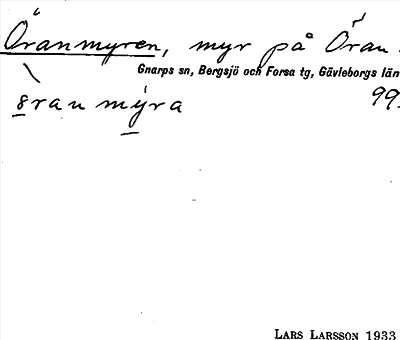 Öranmyren, myr på Öran.
Gnarps sn, Bergsjö och Forsa tg, Gävleborgs län
ran mýra
99.
LARS LARSSON 1933